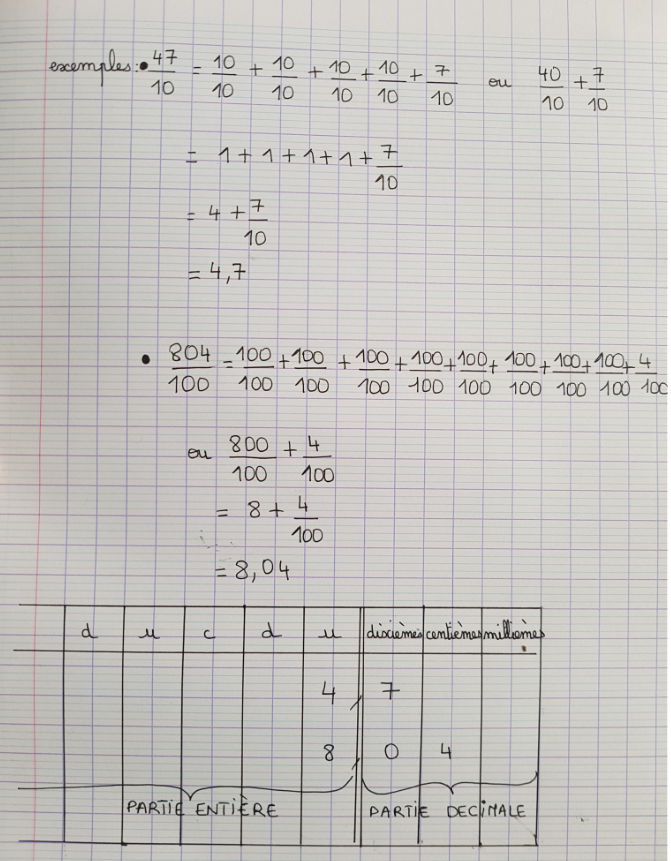 exemples: • 47/10 = 10/10 + 10/10 + 10/10 + 10/10 + 7/10 ou 40/10 + 7/10
= 1 + 1 + 1 + 1 + 7/10
= 4 + 7/10
= 4,7
• 804/100 = 100/100 + 100/100 + 100/100 + 100/100 + 100/100 + 100/100 + 100/100 + 100/100 + 4/100
ou 800/100 + 4/100
= 8 + 4/100
= 8,04
d u c d u dixièmes centièmes millièmes
4, 7
8, 0 4
PARTIE ENTIÈRE PARTIE DECIMALE